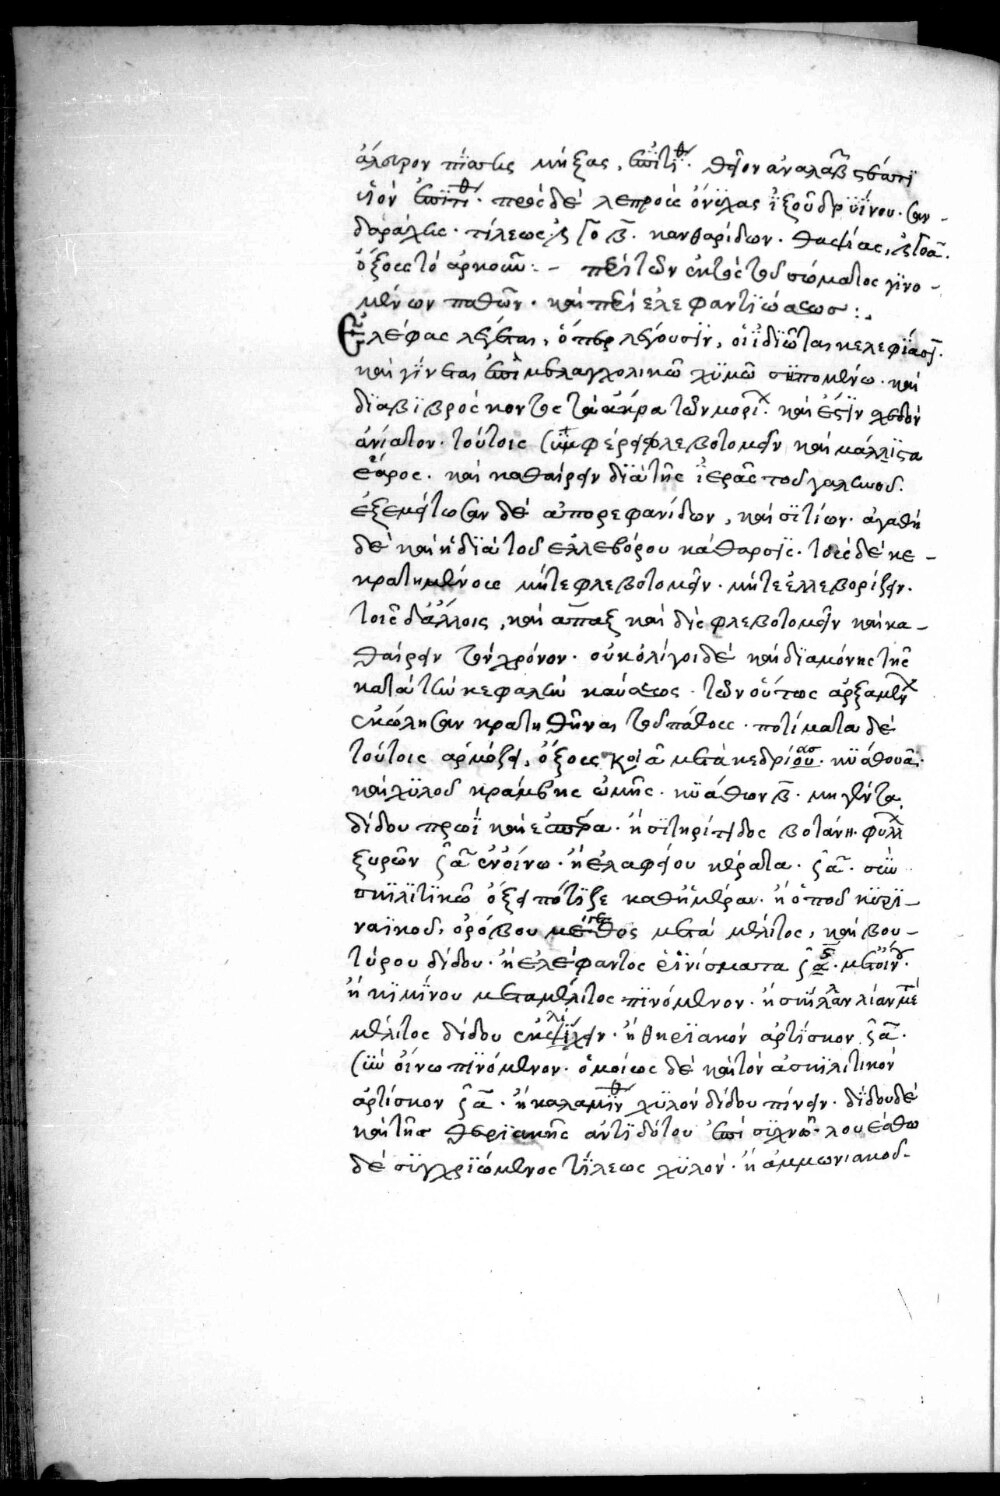 ἄλσιρον πίατεις μήξας, ἐπιτι^θ. θεῖον ἀναλαβ στέατι
ὑὸν ἐπιτι^θ. πρὸς δὲ λεπροὺς ὄνυχας ἰξοῦ δρυΐνου. σαν-
δαράχης. πίλεως.
κανθαρίδων. θαψίας,
ὄξους τὸ ἀρκοῦν: - περὶ τῶν ἐντὸς τοῦ σώματος γινο-
μένων παθῶν. καὶ περὶ ἐλεφαντιώσεως :.
Ἐλέφας λέγεται, ὅπερ λέγουσιν, οἱ ἰδιῶται κελεφίασιν.
καὶ γίνεται ἐπὶ μελαγχολικῶ χυμῶ σηπομένω. καὶ
διαβιβρόσκοντος τὰ ἄκρα τῶν μορί^χ. καὶ ἔστιν σχεδὸν
ἀνίατον. τούτοις συμφέρει φλεβοτομεῖν καὶ μάλλιστα
ἔαρος. καὶ καθαίρειν διὰ τῆς ἱερᾶς τοῦ γαληνοῦ.
ἐξεμείτωσαν δὲ ἀπὸ ρεφανίδων, καὶ σιτίων. ἀγαθὴ
δὲ καὶ ἡ διὰ τοῦ ἐλλεβόρου κάθαρσις. τοὺς δὲ κε-
κρατημένους μήτε φλεβοτομεῖν. μήτε ἐλλεβορίζειν.
τοῖς δ' ἄλλοις, καὶ ἅπαξ καὶ δὶς φλεβοτομεῖν καὶ κα-
θαίρειν τὸν χρόνον. οὐκ ὀλίγοι δὲ καὶ διαμόνης τῆς
κατὰ τὴν κεφαλὴν καύσεως. τῶν οὕτως ἀρξαμέν^χ
ἐκώλησαν κρατηθῆναι τοῦ πάθους. ποτίματα δὲ
τούτοις ἁρμόζει, ὄξους κο α μετὰ κεδρίας. κυάθου α.
καὶ χυλοῦ κράμβης ὠμῆς. κυάθων β. μιγέντα
δίδου πρωῒ καὶ ἑσπέρα. ἢ σιτηρίτιδος βοτάνη. φύλλ
ξυρῶν α ἐν οἴνω. ἢ ἐλαφείου κέρατα. α. σὺν
σκιλιτικῶ ὄξει πότιζε καθ' ἡμέραν. ἢ ὀποῦ κυρι-
ναϊκοῦ, ὀρόβου μέγεθος μετὰ μέλιτος, καὶ βου-
τύρου δίδου. ἢ ἐλέφαντος ῥινίσματα. μετ' οἴν^ου.
ἢ κιμίνου μετὰ μέλιτος πινόμενον. ἢ σκίλλαν λίαν μετ
μέλιτος δίδου ἐκλείχειν. ἢ θηριακὸν ἀρτίσκον α.
σὺν οἴνω πινόμενον. ὁμοίως δὲ καὶ τὸν ἀσκιλιτικὸν
ἀρτίσκον α. ἢ καλαμίνθ χυλὸν δίδου πίνειν. δίδου δὲ
καὶ τῆς θηριακῆς ἀντιδότου ἐπὶ συχνῶ. λουέσθω
δὲ συγχριόμενος τίλεως χυλόν. ἢ ἀμμωνιακοῦ.